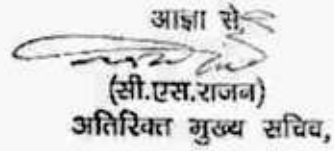 आज्ञा से,
(सी.एस.राजन)
अतिरिक्त मुख्य सचिव,